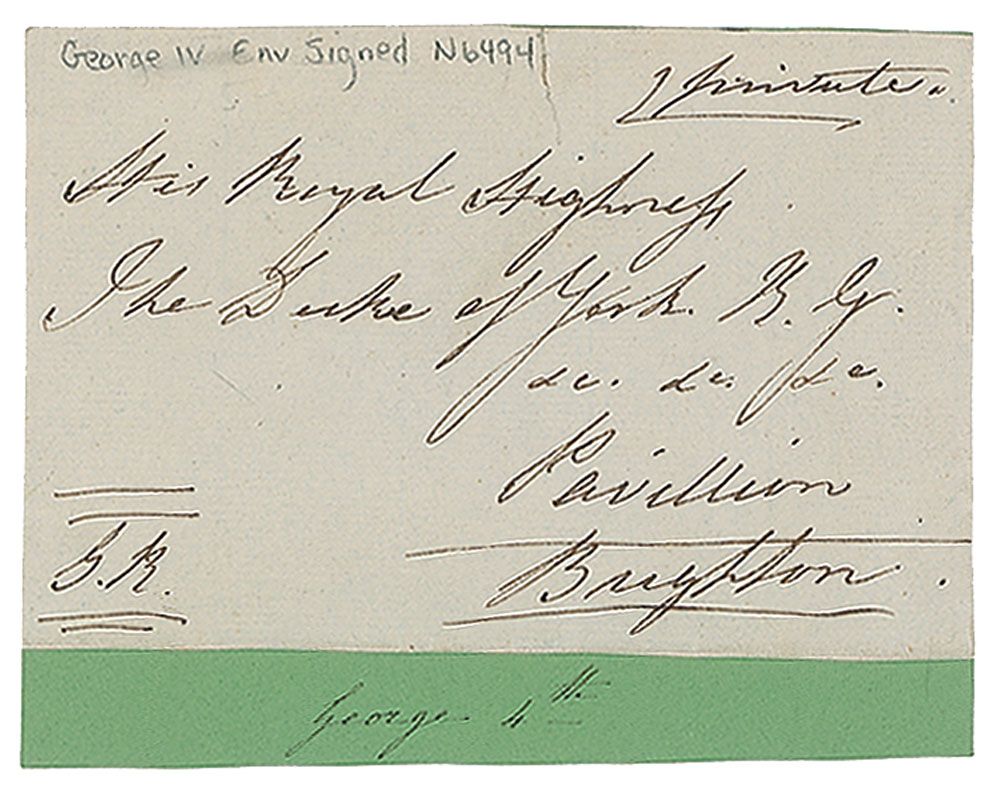 George IV Env Signed N6494
private.
His Royal Highness
The Duke of York. K. G.
&c. &c. &c.
Pavillion
Brighton.
G.R.
George 4th